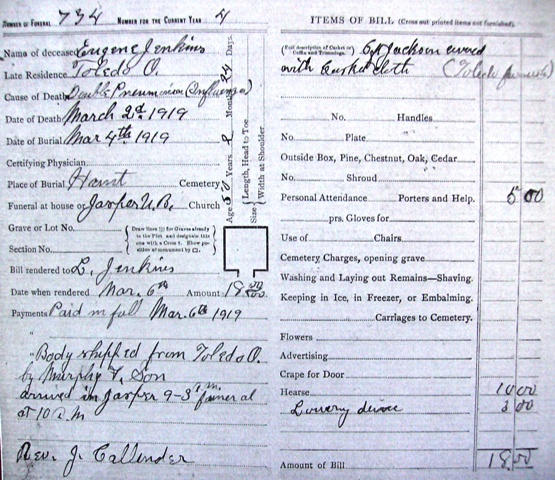 NUMBER OF FUNERAL 734 NUMBER FOR THE CURRENT YEAR 4
Name of deceased Eugene Jenkins
Late Residence Toledo O.
Cause of Death Double Pneumonia (Influenza)
Date of Death March 2d 1919
Date of Burial Mar 4th 1919
Certifying Physician
Place of Burial Cemetery
Funeral at house or Jasper U.B. Church
Grave or Lot No.
Section No.
Draw lines for Graves already in the Plot and designate this one with a Cross †. Show position of monument by
Age Years Months Days.
Size Length, Head to Toe
Width at Shoulder
Bill rendered to L. Jenkins
Date when rendered Mar. 6th Amount 18 00
Payments Paid in full Mar. 6th 1919
"
"Body shipped from Toledo O.
by Murphy & Son
arrived in Jasper 9-3d funeral
at 10 A.M
Rev. J. Callender
ITEMS OF BILL (Cross out printed items not furnished).
(Full description of Casket or Coffin and Trimmings.) Jackson
with Casket cloth (Toledo
No. Handles
No. Plate
Outside Box, Pine, Chestnut, Oak, Cedar
No. Shroud
Personal Attendance Porters and Help. 5 00
prs. Gloves for
Use of Chairs
Cemetery Charges, opening grave
Washing and Laying out Remains—Shaving.
Keeping in Ice, in Freezer, or Embalming.
Carriages to Cemetery.
Flowers
Advertising
Crape for Door
Hearse 10 00
Lowery 3 00
Amount of Bill 18 00